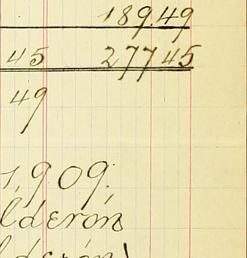 189.49
45 277 45
49
1,909.
lderón
lderón)